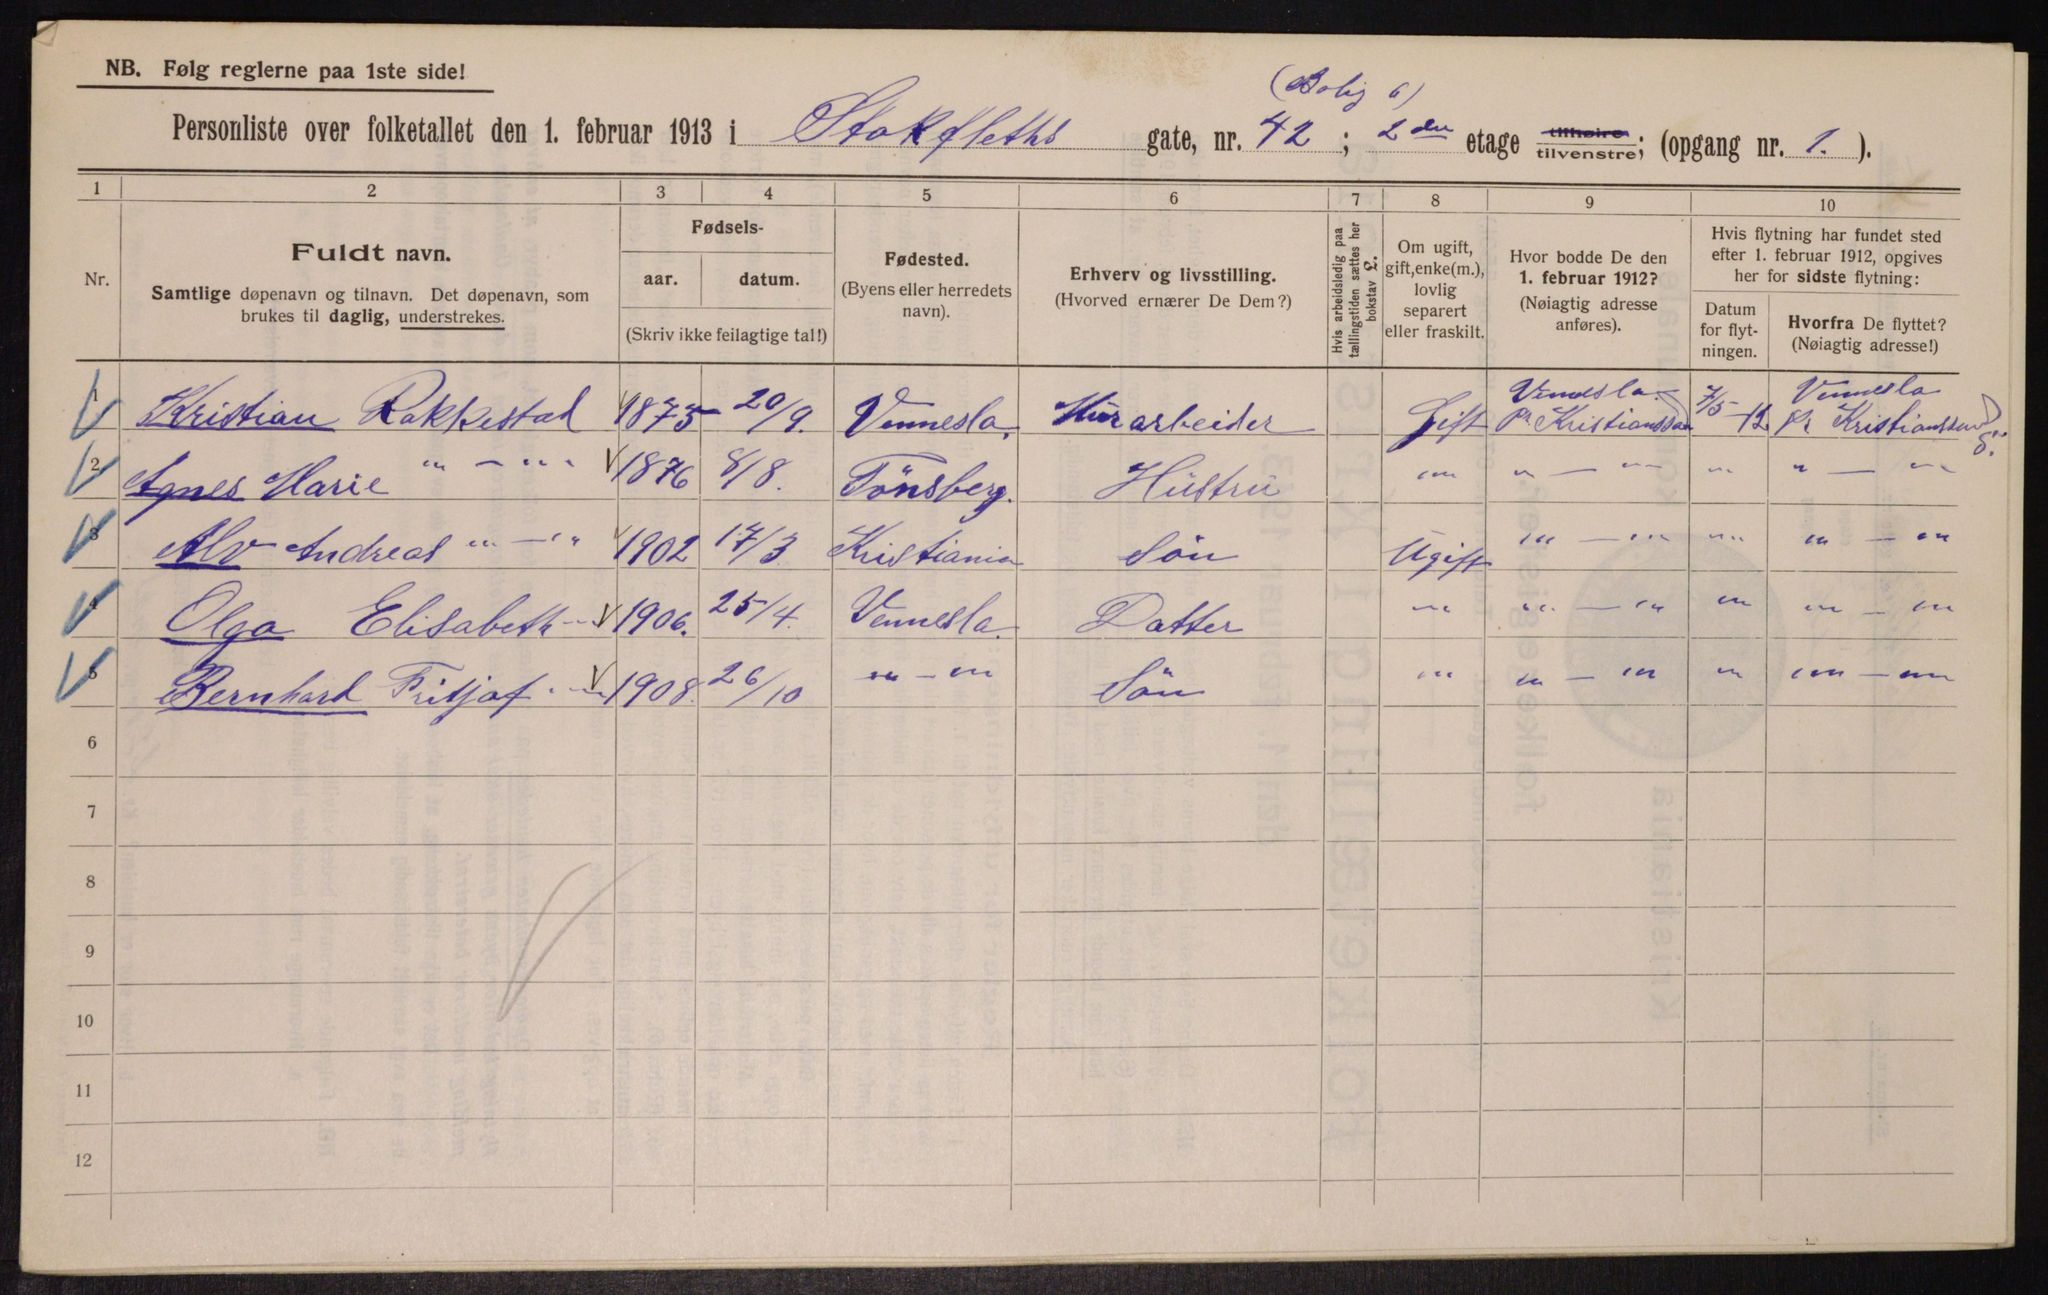 NB. Følg reglerne paa 1ste side!
(Bolig 6)
Personliste over folketallet den 1. februar 1913 i Stokfleths gate, nr. 42; 2den etage tilhøire tilvenstre; (opgang nr. 1.).
1 2 3 4 5 6 7 8 9 10
Nr.
Fuldt navn.
Samtlige døpenavn og tilnavn. Det døpenavn, som
brukes til daglig, understrekes.
Fødsels-
aar. datum.
(Skriv ikke feilagtige tal!)
Fødested.
(Byens eller herredets
navn).
Erhverv og livsstilling.
(Hvorved ernærer De Dem?)
Hvis arbeidsledig paa
tællingstiden sættes her
bokstav L.
Om ugift,
gift, enke(m.),
lovlig
separert
eller fraskilt.
Hvor bodde De den
1. februar 1912?
(Nøiagtig adresse
anføres).
Hvis flytning har fundet sted
efter 1. februar 1912, opgives
her for sidste flytning:
Datum
for flyt-
ningen.
Hvorfra De flyttet?
(Nøiagtig adresse!)
1 Kristian Rakkestad 1875 20/9. Vennesla. arbeider Gift Vennesla. Pr Kristianssand 7/5-12 Vennesla Pr Kristianssand S.
2 Agnes Marie " - " 1876 8/8. Tönsberg. Hustru " " - " " " - "
3 Alv Andreas " - " 1902 17/3 Kristiania Sön Ugift " - " " " - "
4 Olga Elisabeth - " 1906. 25/4. Vennesla. Datter " " - " " " - "
5 Bernhard Fritjof - " 1908. 26/10 " - " Sön " " - " " " - "
6
7
8
9
10
11
12